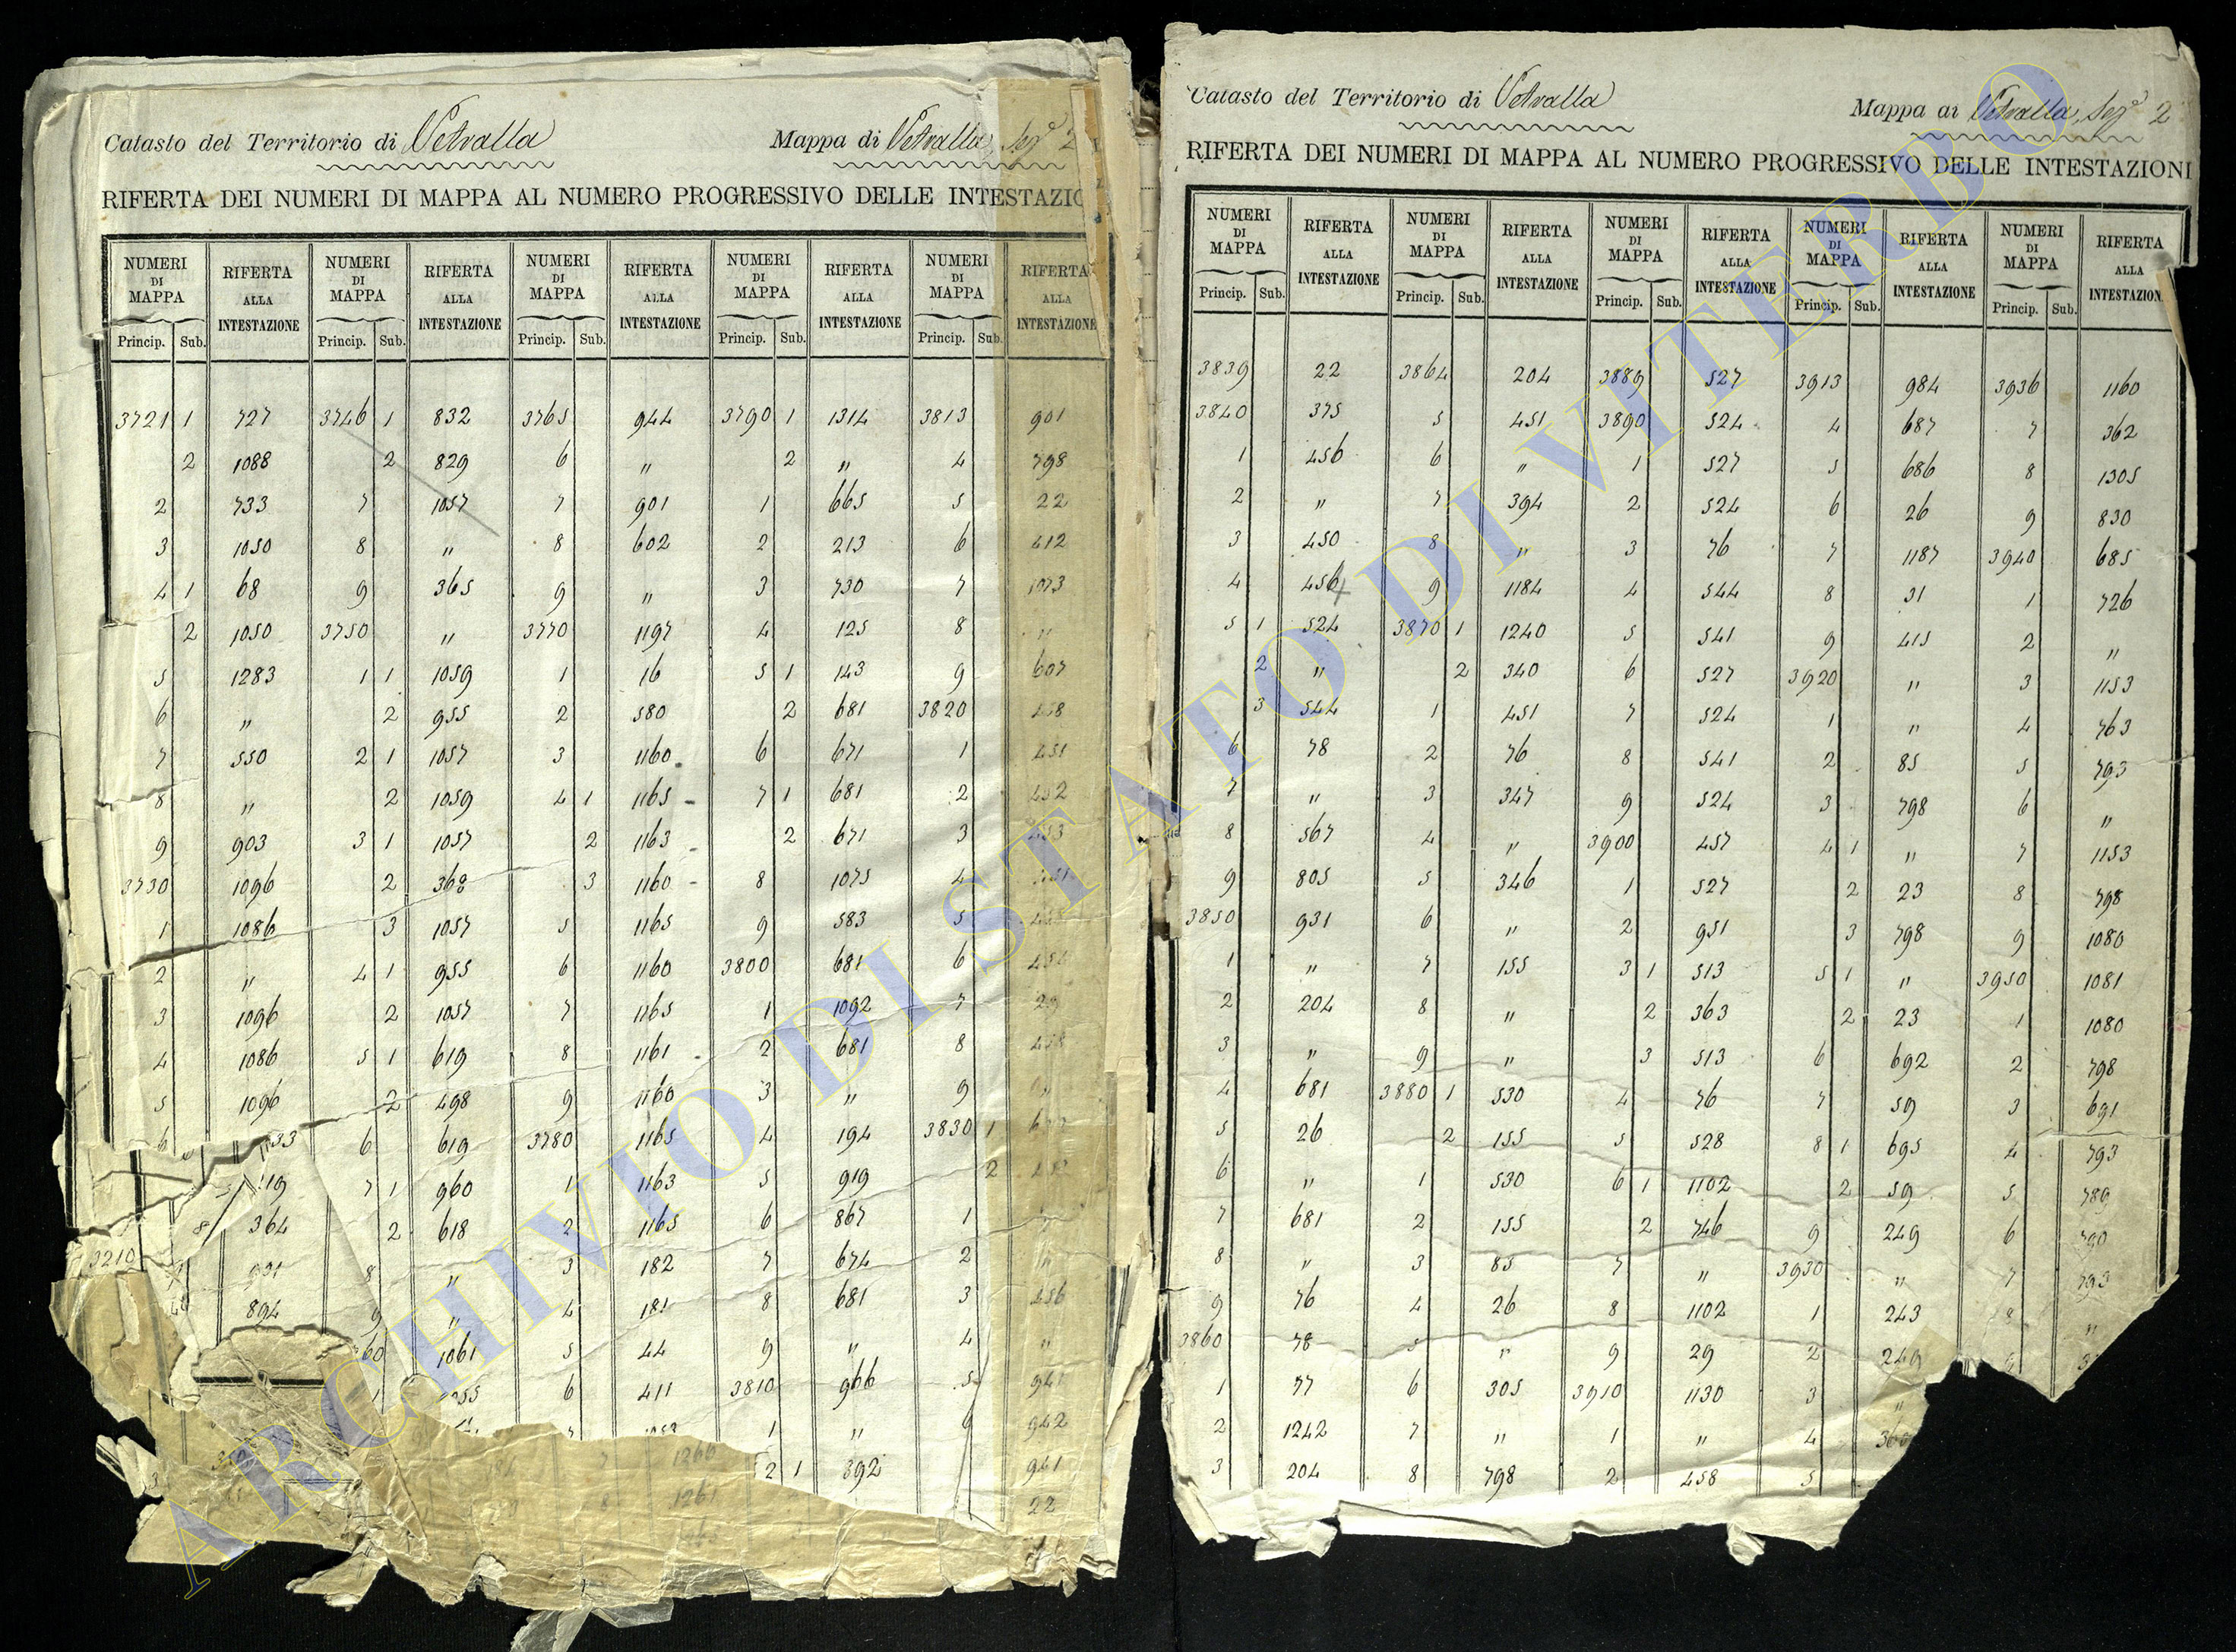 Catasto del Territorio di Vetralla Mappa di Vetralla, Sez.e 2
RIFERTA DEI NUMERI DI MAPPA AL NUMERO PROGRESSIVO DELLE INTESTAZIO
NUMERI DI MAPPA RIFERTA ALLA INTESTAZIONE NUMERI DI MAPPA RIFERTA ALLA INTESTAZIONE NUMERI DI MAPPA RIFERTA ALLA INTESTAZIONE NUMERI DI MAPPA RIFERTA ALLA INTESTAZIONE NUMERI DI MAPPA RIFERTA ALLA INTESTAZIONE
Princip. Sub. Princip. Sub. Princip. Sub. Princip. Sub. Princip. Sub.
3721 1 727 3746 1 832 3765 944 3790 1 1314 3813 901
2 1088 2 829 6 " 2 " 4 798
2 733 7 1057 7 901 1 665 5 22
3 1050 8 " 8 602 2 213 6 412
4 1 68 9 365 9 " 3 730 7 1073
2 1050 3750 " 3770 1197 4 125 8 "
5 1283 1 1 1059 1 16 5 1 143 9 607
6 " 2 955 2 580 2 681 3820 458
7 550 2 1 1057 3 1160 6 671 1 451
8 " 2 1059 4 1 1165 7 1 681 2 452
9 903 3 1 1057 2 1163 2 671 3 453
3730 1096 2 368 3 1160 8 1075 4 451
1 1086 3 1057 5 1165 9 583 5
2 " 4 1 955 6 1160 3800 681 6
3 1096 2 1057 7 1165 1 1092 7
4 1086 5 1 619 8 1161 2 681 8 458
5 1096 2 498 9 1160 3 " 9 "
6 33 6 619 3780 1165 4 194 3830 1
119 7 1 960 1 1163 5 919 2
8 364 2 618 2 1165 6 867 1
3210 931 8 " 3 182 7 674 2 "
894 9 " 4 181 8 681 3 456
60 1061 5 44 9 " 4 "
1 6 411 3810 966 5 941
1 " 6 942
7 1260 2 1 392 941
8 1261 22
Catasto del Territorio di Vetralla Mappa di Vetralla, Sez.e 2
RIFERTA DEI NUMERI DI MAPPA AL NUMERO PROGRESSIVO DELLE INTESTAZIONI
NUMERI DI MAPPA RIFERTA ALLA INTESTAZIONE NUMERI DI MAPPA RIFERTA ALLA INTESTAZIONE NUMERI DI MAPPA RIFERTA ALLA INTESTAZIONE NUMERI DI MAPPA RIFERTA ALLA INTESTAZIONE NUMERI DI MAPPA RIFERTA ALLA INTESTAZION
Princip. Sub. Princip. Sub. Princip. Sub. Princip. Sub. Princip. Sub.
3839 22 3864 204 3889 527 3913 984 3936 1160
3840 375 5 451 3890 524 4 687 7 362
1 456 6 " 1 527 5 686 8 1305
2 " 7 394 2 524 6 26 9 830
3 450 8 " 3 76 7 1187 3940 685
4 456 9 1184 4 544 8 31 1 726
5 1 524 3870 1 1240 5 541 9 415 2 "
2 " 2 340 6 527 3920 " 3 1153
3 544 1 451 7 524 1 " 4 763
6 78 2 76 8 541 2 85 5 793
7 " 3 347 9 524 3 798 6 "
8 567 4 " 3900 457 4 1 " 7 1153
9 805 5 346 1 527 2 23 8 798
3850 931 6 " 2 951 3 798 9 1080
1 " 7 155 3 1 513 5 1 " 3950 1081
2 204 8 " 2 363 2 23 1 1080
3 " 9 " 3 513 6 692 2 798
4 681 3880 1 530 4 76 7 59 3 691
5 26 2 155 5 528 8 1 695 4 793
6 " 1 530 6 1 1102 2 59 5 789
7 681 2 155 2 746 9 249 6 790
8 " 3 85 7 " 3930 " 7 793
9 76 4 26 8 1102 1 243 8 "
3860 78 5 " 9 29 2 249
1 77 6 305 3910 1130 3 "
2 1242 7 " 1 " 4
3 204 8 798 2 458 5
ARCHIVIO DI STATO DI VITERBO